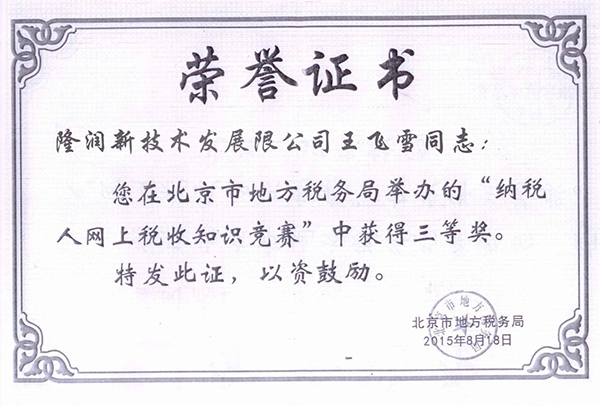 荣誉证书
隆润新技术发展限公司王飞雪同志：
您在北京市地方税务局举办的“纳税
人网上税收知识竞赛”中获得三等奖。
特发此证，以资鼓励。
北京市地方税务局
2015年8月18日